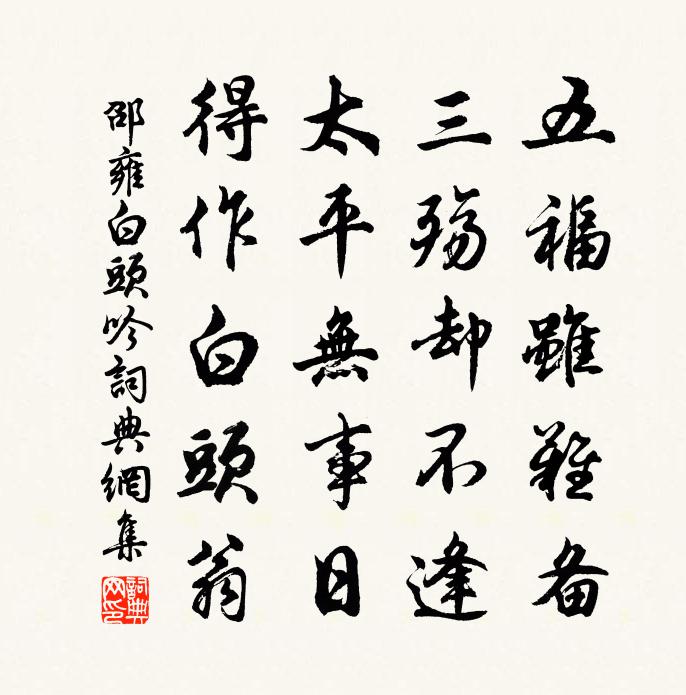 五福雖難备
三殤却不逢
太平無事日
得作白頭翁
邵雍白頭吟詞典網集
詞典網印